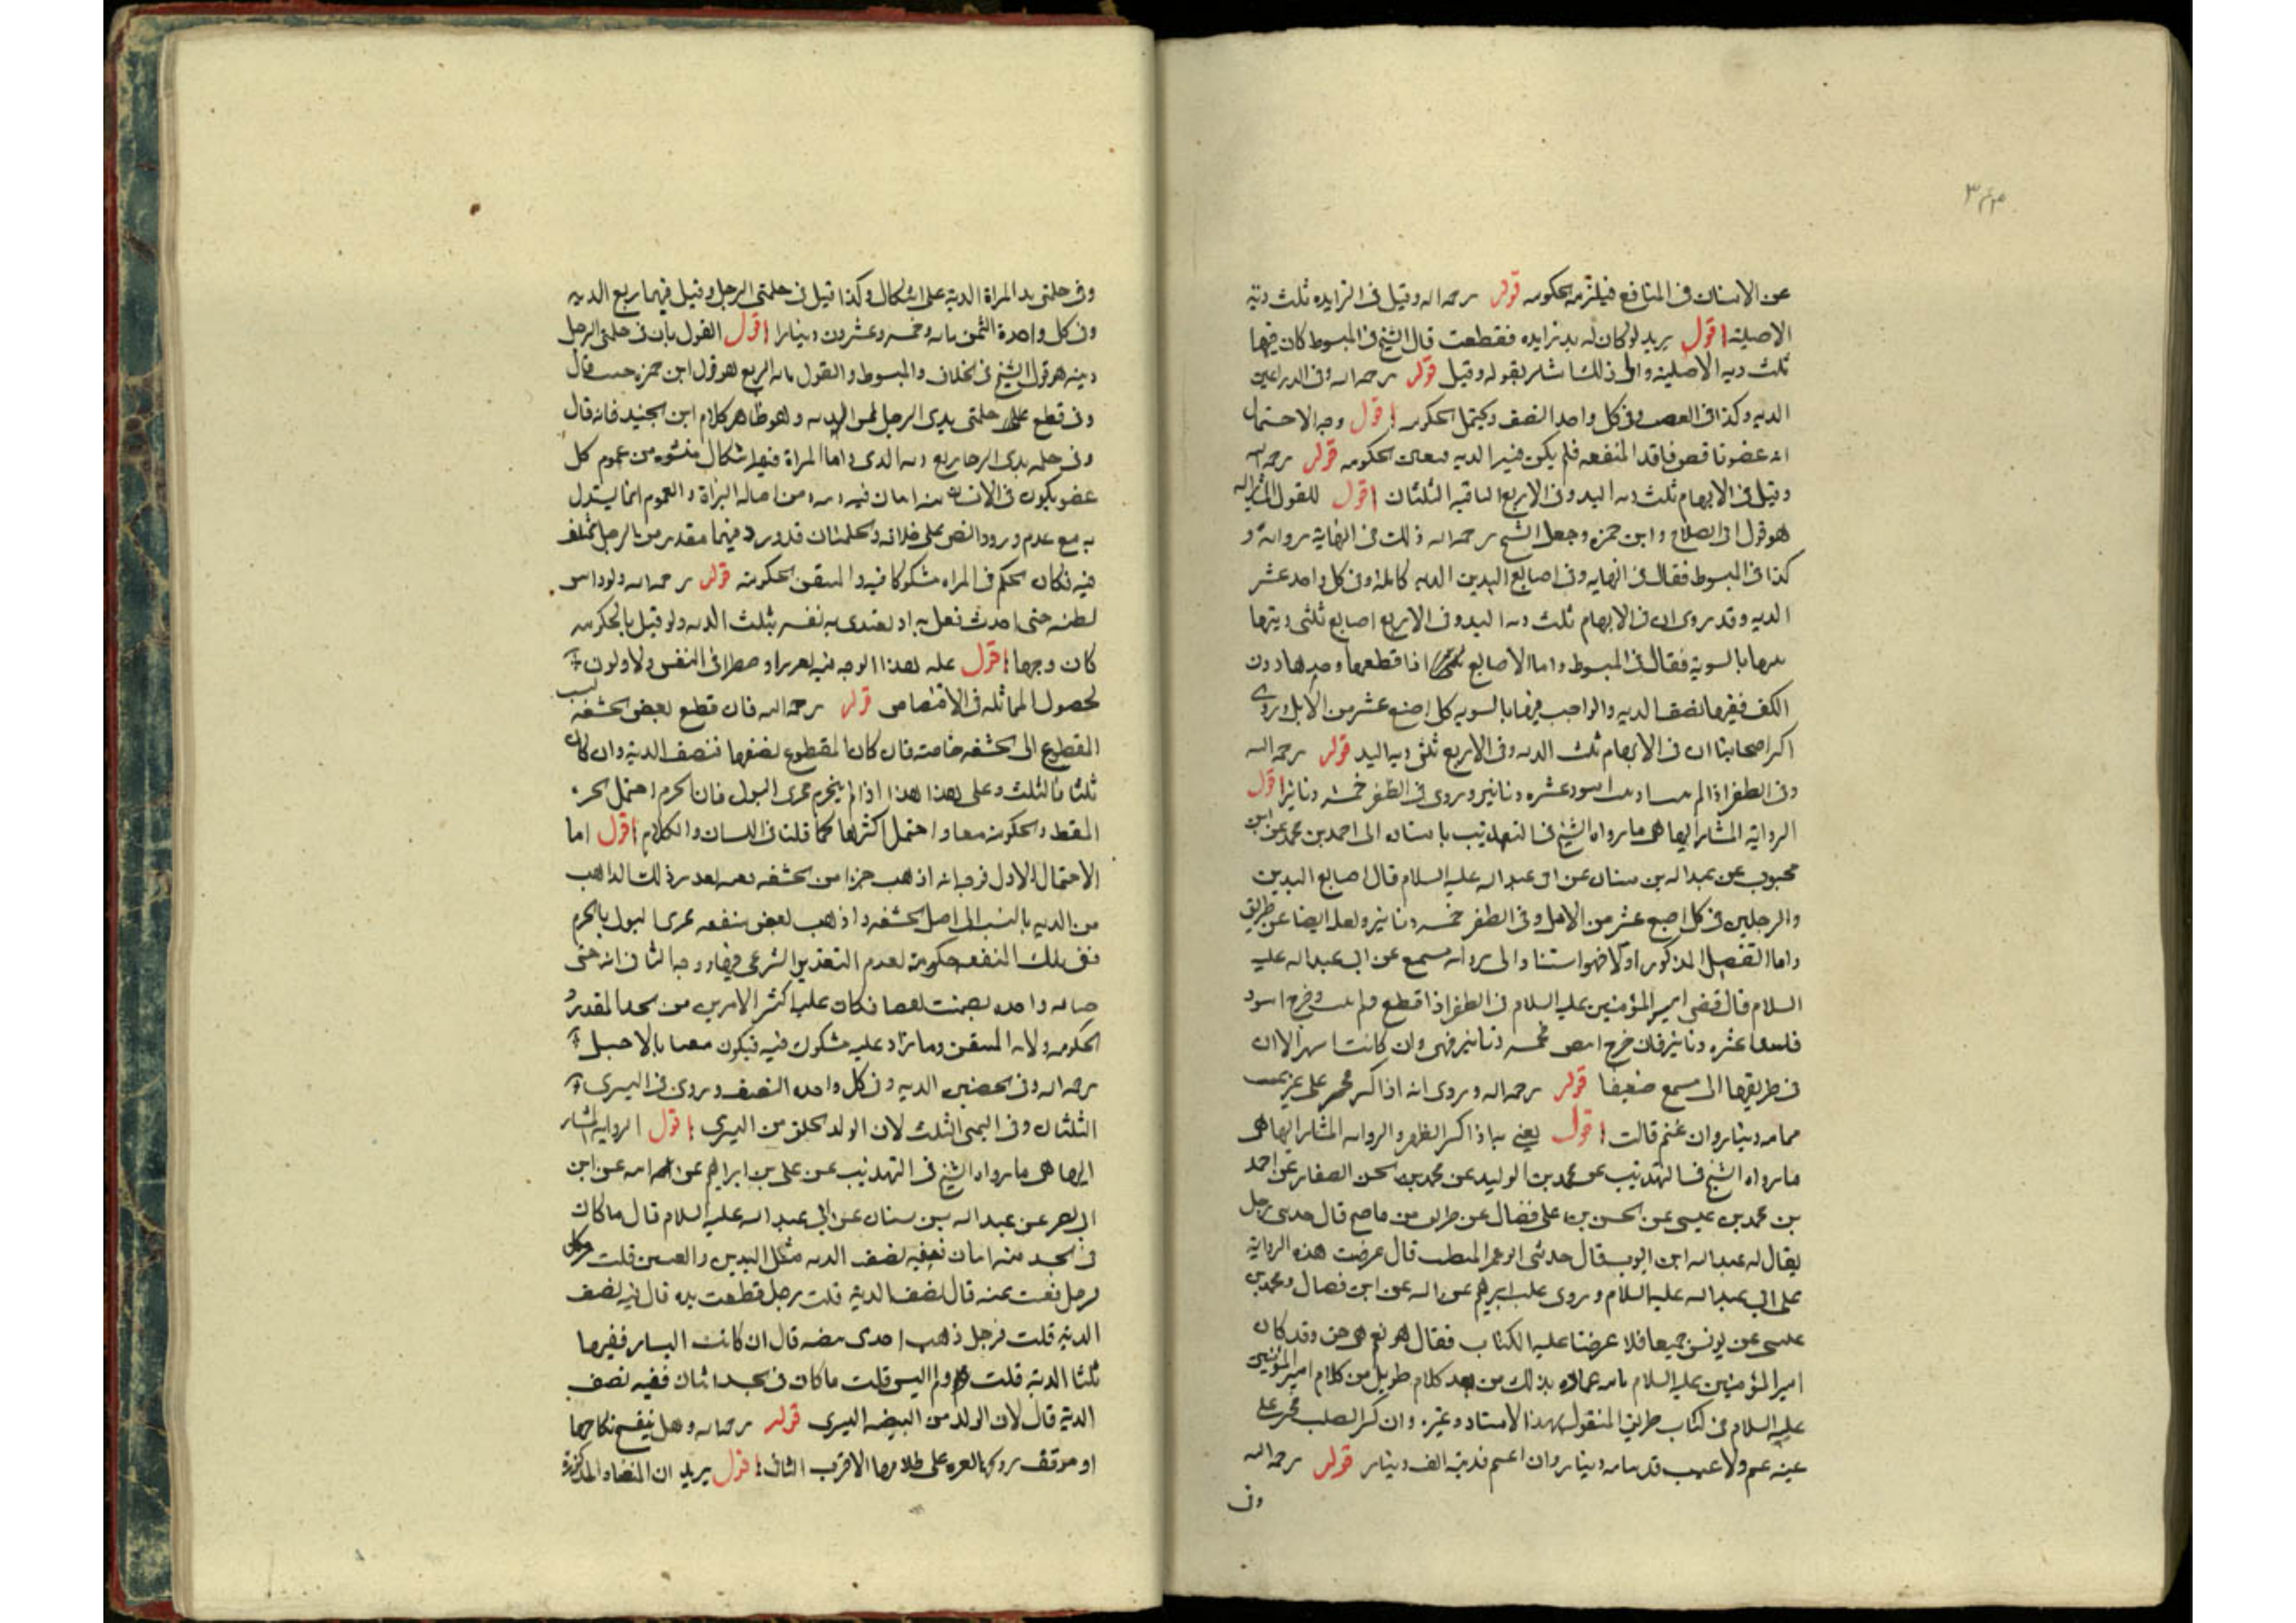 عن الاسنان فى المنافع فيلزمه الحكومه قوله رحمه الله وقيل فى الزايده ثلث دية
الاصلية اقول يريد لو كان له يد زايده فقطعت قال الشيخ فى المبسوط كان فيها
ثلث ديه الاصلية والى ذلك اشار بقوله وقيل قوله رحمه الله وفى الذراعين
الديه وكذا فى العضدين وفى كل واحد النصف ويحتمل الحكومه اقول وجه الاحتمال
انه عضو ناقص فاقد المنفعه فلم يكن فيه الديه فتعين الحكومه قوله رحمه الله
وقيل فى الابهام ثلث ديه اليد وفى الاربع الباقيه الثلثان اقول للقول المشار اليه
هو قول ابى الصلاح وابن حمزه وجعل الشيخ رحمه الله ذلك فى النهاية رواية و
كذا فى المبسوط فقال فى النهايه وفى اصابع اليدين الديه كاملة وفى كل واحد عشر
الديه وقد روى ان فى الابهام ثلث ديه اليد وفى الاربع اصابع ثلثى ديتها
بينها بالسوية فقال فى المبسوط واما الاصابع اذا قطعها وحدها دون
الكف ففيها نصف الديه والواجب فيها بالسويه كل اصبع عشر من الابل وروى
اكثر اصحابنا ان فى الابهام ثلث الديه وفى الاربع ثلثى ديه اليد قوله رحمه الله
وفى الظفر اذا لم ينبت او نبت اسود عشره دنانير وروى فى الظفر خمسه دنانير اقول
الرواية المشار اليها هى ما رواه الشيخ فى التهذيب باسناده الى احمد بن محمد عن ابن
محبوب عن عبد الله بن سنان عن ابى عبد الله عليه السلام قال اصابع اليدين
والرجلين فى كل اصبع عشر من الابل وفى الظفر خمسه دنانير ولعله ايضا عن طريق
واما التفصيل المذكور اولا فهو استنادا الى رواية مسمع عن ابى عبد الله عليه
السلام قال قضى امير المؤمنين عليه السلام فى الظفر اذا قطع ولم ينبت وخرج اسود
فاسدا عشره دنانير فان خرج ابيض فخمسه دنانير فهى وان كانت اشهر الا ان
فى طريقها الى مسمع ضعيفا قوله رحمه الله وروى انه اذا كسر فجبر على غير عيب
فمايه دينار وان عثم قالت اقول يعنى به اذا كسر الظهر والروايه المشار اليها هى
ما رواه الشيخ فى التهذيب عن محمد بن الوليد عن محمد بن الحسن الصفار عن احمد
بن محمد بن عيسى عن الحسن بن على فضال عن ظريف بن ناصح قال حدثنى رجل
يقال له عبد الله ابن ايوب قال حدثنى ابو عمر المتطبب قال عرضت هذه الرواية
على ابى عبد الله عليه السلام وروى على بن ابراهيم عن ابيه عن ابن فضال ومحمد بن
عيسى عن يونس جميعا قالا عرضنا عليه الكتاب فقال هو نعم هى حق وقد كان
امير المؤمنين عليه السلام يامر عماله بذلك من بعد كلام طويل من كلام امير المؤمنين
عليه السلام فى كتاب ظريف المنقول بهذا الاسناد وغيره وان كسر الصلب فجبر على
غير عثم ولا عيب فديته مايه دينار وان اعثم فديته الف دينار قوله رحمه الله
وفى
وفى حلمتى يد المراة الدية على اشكال وكذا قيل فى حلمتى الرجل وقيل فيهما ربع الديه
وفى كل واحدة الثمن مايه وخمسه وعشرون دينارا اقول القول بان فى حلمتى الرجل
ديته هو قول الشيخ فى الخلاف والمبسوط والقول بانه الربع هو قول ابن حمزه حيث قال
وفى قطع على حلمتى يدى الرجل ثمن الديه وهو ظاهر كلام ابن الجنيد فانه قال
وفى حلمه ثدى الرجل ربع ديه الثدى واما المراة فيها اشكال منشؤه من عموم كل
عضو يكون فى الانسان منه اثنان فيه ديه ومن اصاله البراة والعموم انما يستدل
به مع عدم ورود النص على خلافه والحلمتان قد ورد فيهما مقدر من الرجل مختلف
فيه فكان الحكم فى المراه مشكوكا فيه والمتيقن الحكومة قوله رحمه الله ولو داس
بطنه حتى احدث فعل به او يفتدى به نفسه بثلث الديه ولو قيل بالحكومه
كان وجها اقول عليه بهذا الوجه فيه تعزيرا وخطرا فى النفس ولا ولوق
لحصول المماثله فى الاقتصاص قوله رحمه الله فان قطع بعض الحشفه نسب
المقطوع الى الحشفه خاصة فان كان المقطوع نصفها فنصف الدية وان كان
ثلثا فالثلث وعلى هذا هذا اذا لم ينخرم مجرى البول فان انخرم احتمل الحر
المقط والحكومة معا واحتمل اكثرها كما قلنا فى اللسان والكلام اقول اما
الاحتمال الاول فوجه انه اذهب جزءا من الحشفه فعليه بقدر ذلك الذاهب
من الديه بالنسبه الى اصل الحشفه واذهب بعض منفعه مجرى البول بالخرم
ففى تلك المنفعه حكومة لعدم التقدير الشرعى فيها ووجه الثانى انه حق
جنايه واحده تضمنت نقصا فكان عليه اكثر الامرين من الحد المقدر و
الحكومه ولانه المتيقن وما زاد عليه مشكوك فيه فيكون منفيا بالاصل
رحمه الله وفى الخصيتين الديه وفى كل واحده النصف وروى فى اليسرى
الثلثان وفى اليمنى الثلث لان الولد يخلق من اليسرى اقول الروايه المشار
اليها هى ما رواه الشيخ فى التهذيب عن على بن ابراهيم عن ابيه عن ابن
ابى نصر عن عبد الله بن سنان عن ابى عبد الله عليه السلام قال ما كان
فى الجسد منه اثنان ففيه نصف الديه مثل اليدين والعينين قلت
فرجل فقئت عينه قال نصف الدية قلت رجل قطعت يده قال فيه نصف
الدية قلت فرجل ذهب احدى بيضه قال ان كانت اليسار ففيها
ثلثا الدية قلت ولم اليس قلت ما كان فى الجسد اثنان ففيه نصف
الدية قال لان الولد من البيضه اليسرى قوله رحمه الله وهل ينفسخ نكاحها
او موقف على طلاقها الاقرب الثانى اقول يريد ان المفضاه المذكورة